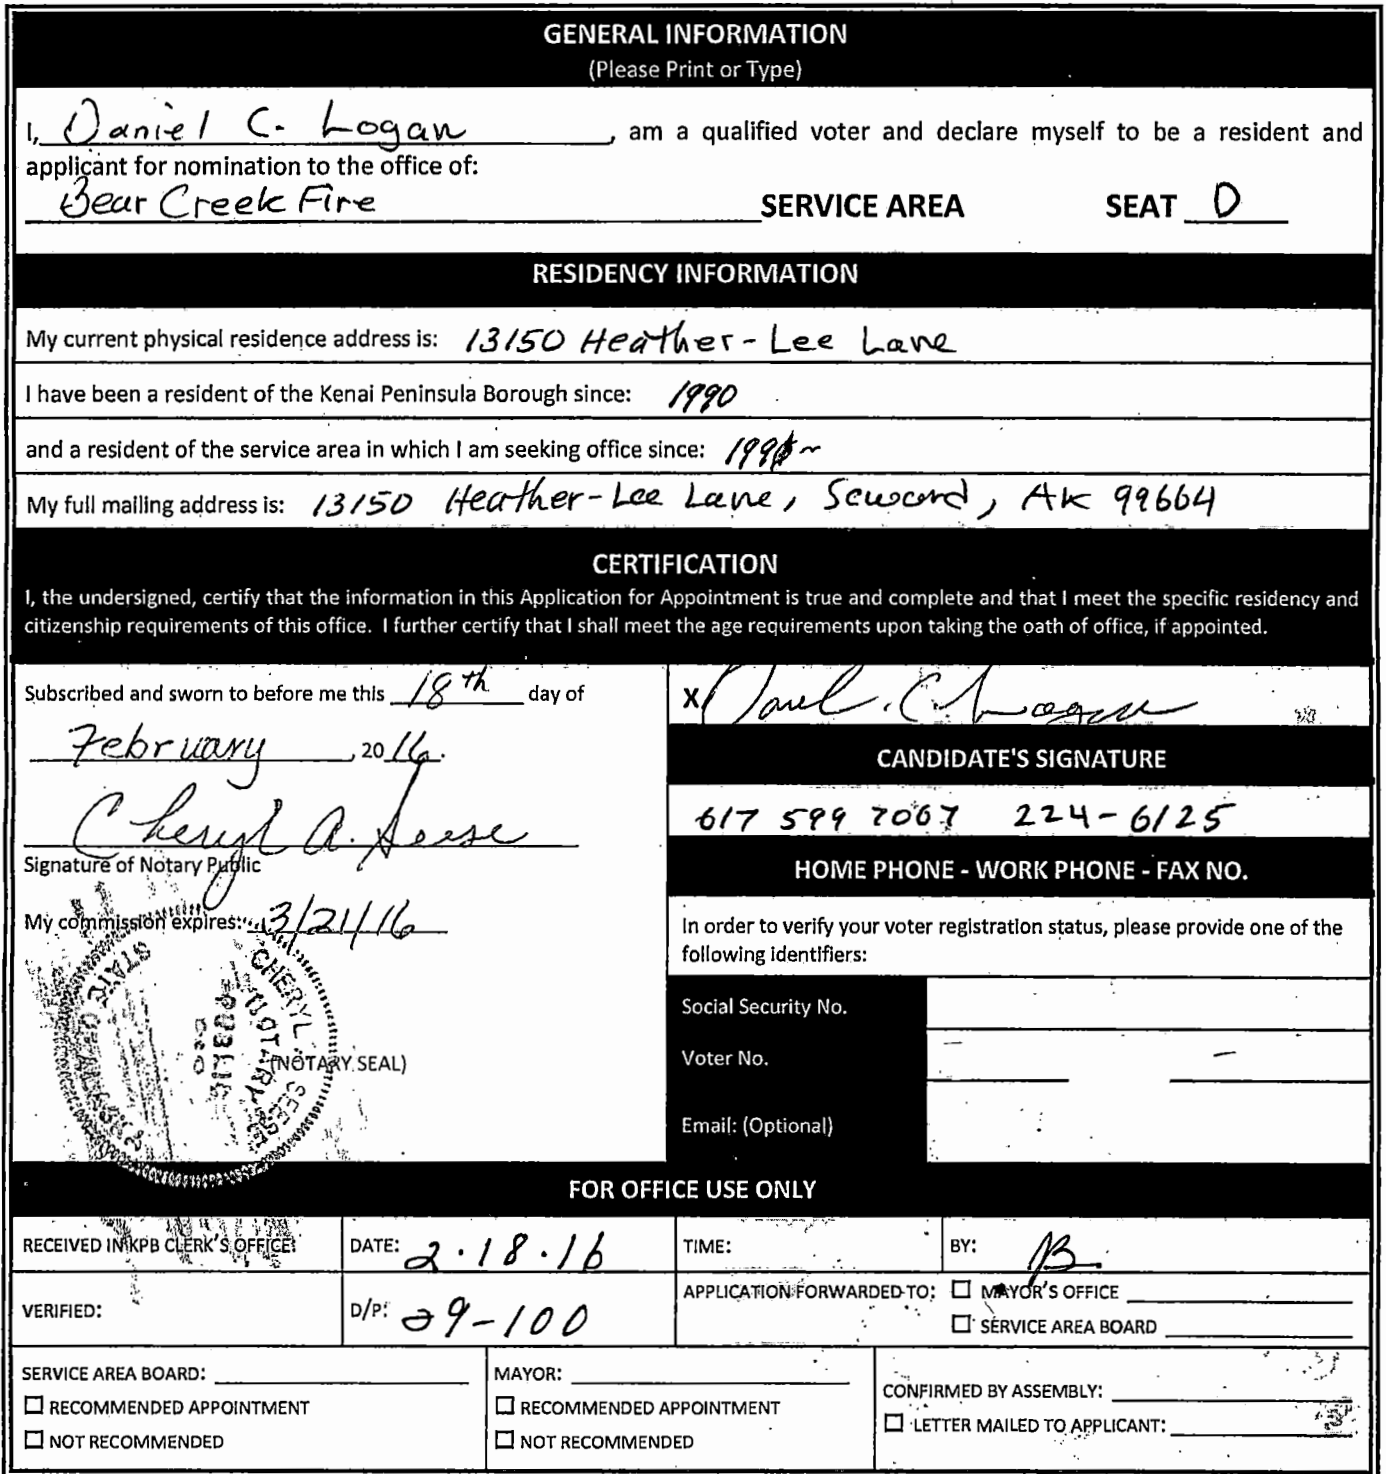 GENERAL INFORMATION
(Please Print or Type)
I, Daniel C. Logan, am a qualified voter and declare myself to be a resident and
applicant for nomination to the office of:
Bear Creek Fire SERVICE AREA SEAT D
RESIDENCY INFORMATION
My current physical residence address is: 13150 Heather-Lee Lane
I have been a resident of the Kenai Peninsula Borough since: 1990
and a resident of the service area in which I am seeking office since:
My full mailing address is: 13150 Heather-Lee Lane, Seward, AK 99664
CERTIFICATION
I, the undersigned, certify that the information in this Application for Appointment is true and complete and that I meet the specific residency and
citizenship requirements of this office. I further certify that I shall meet the age requirements upon taking the oath of office, if appointed.
Subscribed and sworn to before me this 18th day of
February, 2016.
Cheryl A. Seese
Signature of Notary Public
My commission expires: 3/21/16
CHERYL SEESE
NOTARY
PUBLIC
(NOTARY SEAL)
X Daniel C. Logan
CANDIDATE'S SIGNATURE
617 599 7067 224-6125
HOME PHONE - WORK PHONE - FAX NO.
In order to verify your voter registration status, please provide one of the
following identifiers:
Social Security No.
Voter No.
Email: (Optional)
FOR OFFICE USE ONLY
RECEIVED IN KPB CLERK'S OFFICE: DATE: 2.18.16 TIME: BY: JB
VERIFIED: D/P: 29-100 APPLICATION FORWARDED TO: ☐ MAYOR'S OFFICE
☐ SERVICE AREA BOARD
SERVICE AREA BOARD:
☐ RECOMMENDED APPOINTMENT
☐ NOT RECOMMENDED
MAYOR:
☐ RECOMMENDED APPOINTMENT
☐ NOT RECOMMENDED
CONFIRMED BY ASSEMBLY:
☐ LETTER MAILED TO APPLICANT: